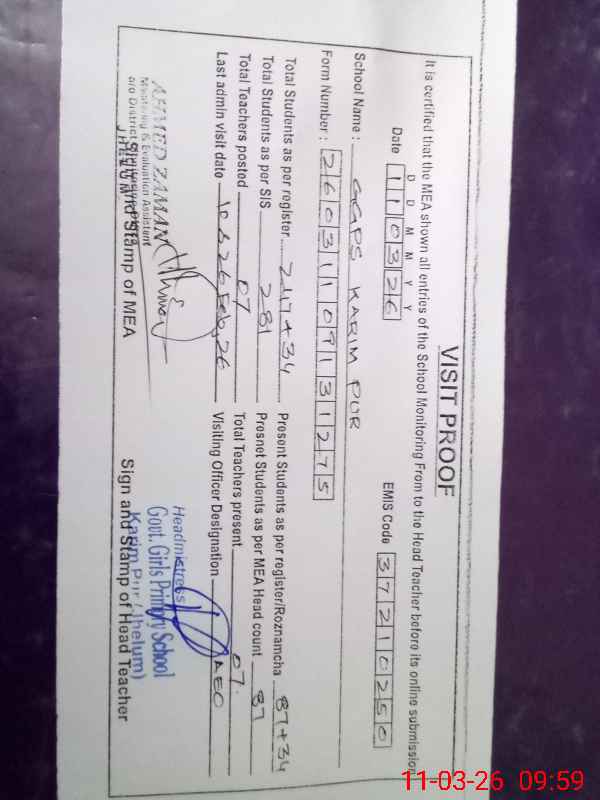 VISIT PROOF
It is certified that the MEA shown all entries of the School Monitoring From to the Head Teacher before its online submission
D D M M Y Y
Date 110326 EMIS Code 37210250
School Name : GGPS KARIM PUR
Form Number : 26031109131275
Total Students as per register 247+34 Present Students as per register/Roznamcha 87+34
Total Students as per SIS 281 Presnet Students as per MEA Head count 87
Total Teachers posted 07 Total Teachers present 07.
Last admin visit date Feb, 26 Visiting Officer Designation AEO
AHMED ZAMAN
Monitoring & Evaluation Assistant
o/o District
JHELUM
Sign and Stamp of MEA
Headmistress
Govt. Girls Primary School
Karim Pur (Jhelum)
Sign and Stamp of Head Teacher
11-03-26 09:59